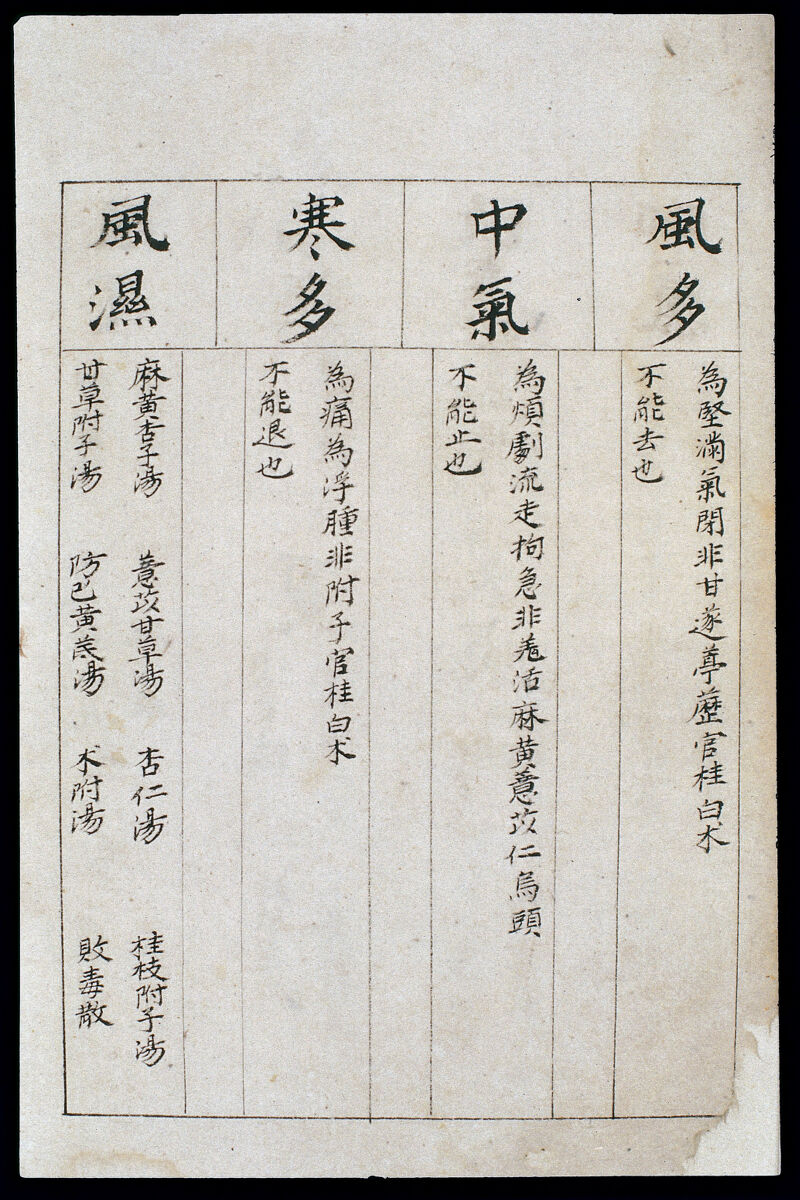 風多
為堅滿氣閉非甘遂葶藶官桂白术
不能去也
中氣
為煩劇流走拘急非羗活麻黄薏苡仁烏頭
不能止也
寒多
為痛為浮腫非附子官桂白术
不能退也
風濕
麻黄杏子湯 薏苡甘草湯 杏仁湯 桂枝附子湯
甘草附子湯 防己黄芪湯 术附湯 敗毒散